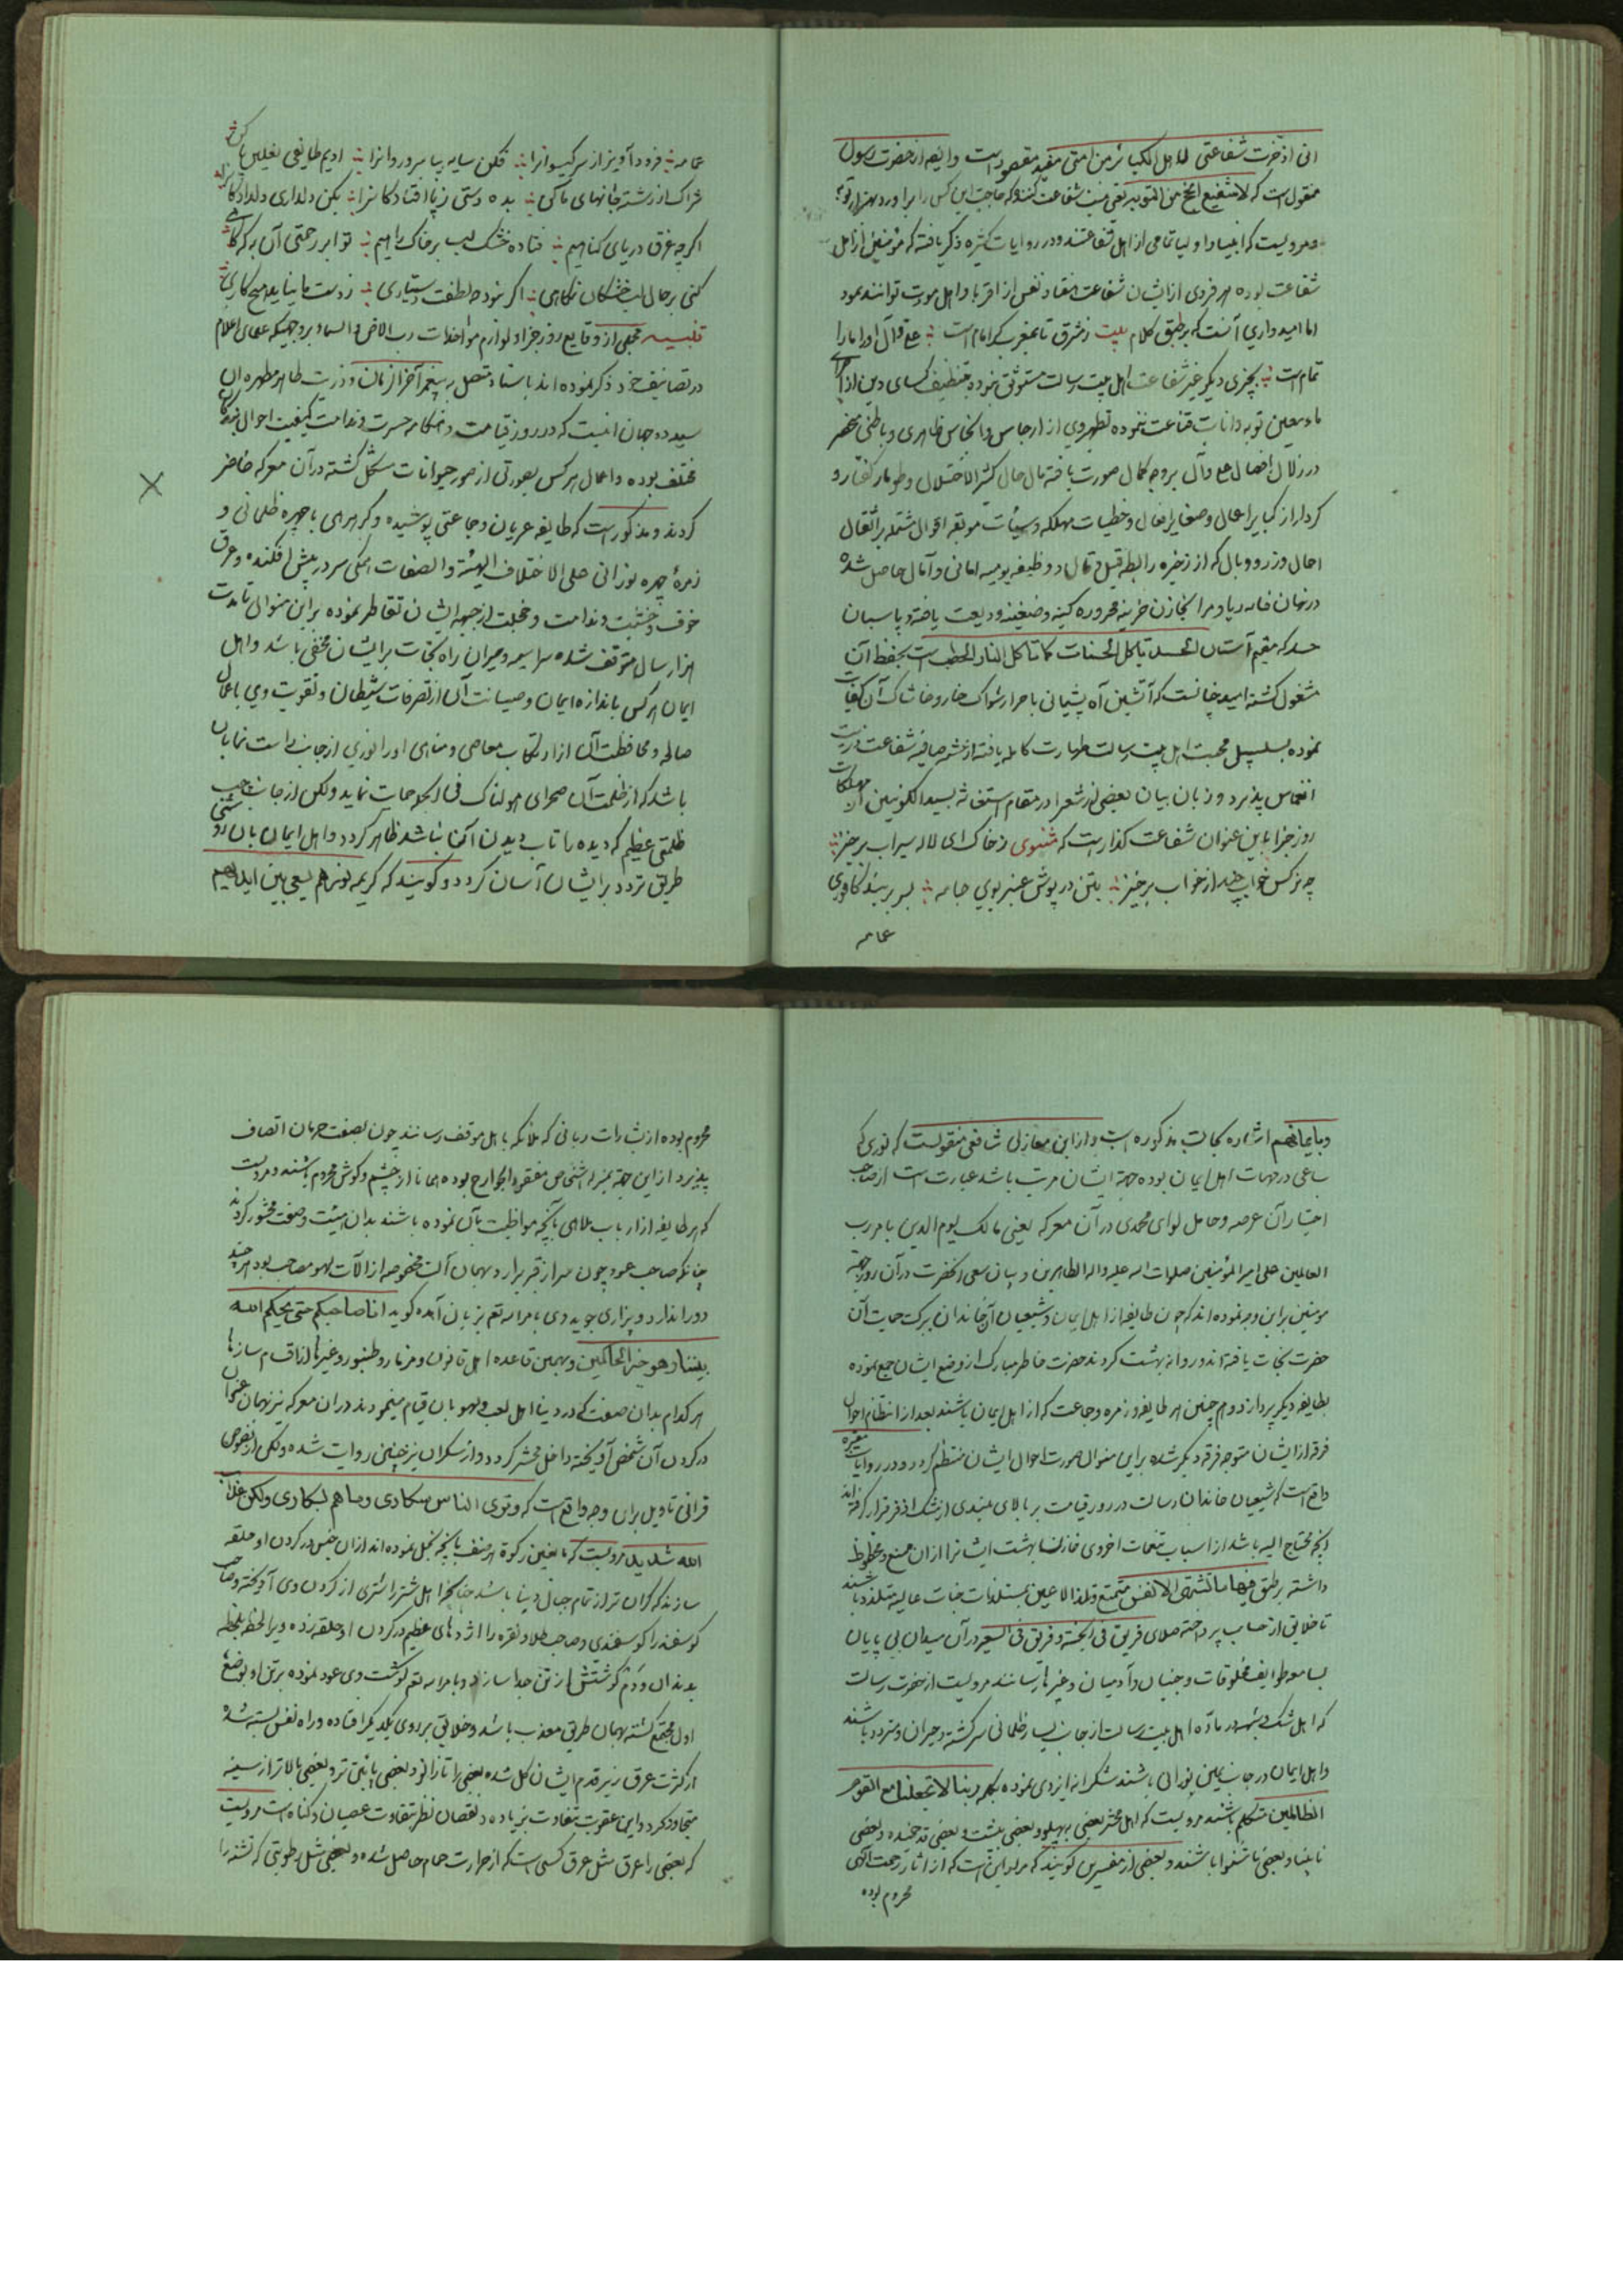 انی ادخرت شفاعتی لاهل الکبائر من امتی مفید مقصود است وایضا از حضرت رسول
منقول است که لا شفیع انجح من التوبه یعنی نیست شفاعت کننده که حاجت این کس را برآورد بهتر از توبه
ومرویست که انبیا و اولیا تمامی از اهل شفاعتند و در روایات کثیره ذکر یافته که مؤمنین از اهل
شفاعت بوده هر فردی از ایشان شفاعت هفتاد نفس از اقربا و اهل مودت توانند نمود
اما امیدواری آنست که برطبق کلام بیت زمشرق تا بمغرب گر امام است علی و آل او ما را
تمام است بچیزی دیگر غیر شفاعت اهل بیت رسالت مستوثق نبوده بتنظیف کسای دین از
ماء معین توبه و انابت قناعت ننموده تطهیر وی از ارجاس و انجاس ظاهری و باطنی منحصر
در زلال افضال علی و آل بروجه کمال صورت یافته مآل حال کثیر الاختلال و طومار گفتار و
کردار از کبایر اعمال و صغایر افعال و خطیات مهلکه و سیئات موبقه اقوال مشتمله بر اثقال
احمال وزر و وبال که از ذخیره رابطه قیل و قال و وظیفه یومیه امانی و آمال حاصل شده
در نهان خانه ریا و مرا بخازن خزینه محروره کینه و ضغینه ودیعت یافته و پاسبان
حسد که مقیم آستان الحسد یاکل الحسنات کما تاکل النار الحطب است بحفظ آن
مشغول گشته امید چنانست که آتشین آه پشیمانی باحراز اشواک خار و خاشاک آن کفایت
نموده بسلسبیل محبت اهل بیت رسالت طهارت کامله یافته از چشمه صافیه شفاعت
انغماس پذیرد و زبان بیان بعضی از شعرا در مقام استغاثه بسید الکونین از مهلکات
روز جزا باین عنوان شفاعت گذار است که مثنوی زخاک ای لاله سیراب برخیز
چو نرگس خواب چند از خواب برخیز بتن درپوش عنبر بوی جامه بسر بربند کافوری
عمامه
عمامه فرود آویز از سر گیسوانرا فکن سایه بپا سرو روانرا ادیم طایفی نعلین پا کن
شراک از رشته جانهای ما کن بده دستی زپا افتادکانرا بکن دلداری دلدادکانرا
اگرچه غرق دریای گناهیم فتاده خشک لب بر خاک راهیم تو ابر رحمتی آن به که گاهی
کنی بر حال لب خشکان نگاهی اگر نبود چو لطفت دستیاری زدست ما نیاید هیچ کاری
تنبیه مجملی از وقایع روز جزا و لوازم مواخذات رب الارض و السماء بروجهیکه علمای اعلام
در تصانیف خود ذکر نموده اند باسناد متصل به پیغمبر آخر الزمان و ذریت طاهره مطهره ان
سید دو جهان انیست که در روز قیامت و هنگامه حسرت و ندامت کیفیت احوال بندگان
مختلف بوده و اعمال هر کس بصورتی از صور حیوانات متشکل گشته در آن معرکه حاضر
گردند و مذکور است که طایفه عریان و جماعتی پوشیده و گروهی با چهره ظلمانی و
زمره چهره نورانی علی الاختلاف الهیئة و الصفات همگی سر در پیش افکنده و عرق
خوف و خشیت و ندامت و خجلت از جبهه ایشان تقاطر نموده براین منوال تا مدت
هزار سال متوقف شده سراسیمه و حیران راه نجات برایشان مخفی باشد و اهل
ایمان هر کس باندازه ایمان و صیانت آن از تصرفات شیطان و تقویت وی باعمال
صالحه و محافظت آن از ارتکاب معاصی و مناهی او را نوری از جانب راست نمایان
باشد که از ظلمت آن صحرای هولناک فی الجمله حمایت نماید ولکن از جانب چپ
ظلمتی عظیم که دیده را تاب دیدن آن نباشد ظاهر گردد و اهل ایمان بآن روشنی
طریق تردد برایشان آسان گردد و گویند که کریمه نورهم یسعی بین ایدیهم
وبایمانهم اشاره بحالت مذکوره است و از ابن مغازلی شافعی منقولست که نوری که
ساعی در جهات اهل ایمان بوده جهة ایشان مرتب باشد عبارت است از صاحب
اختیار آن عرصه و حامل لوای محمدی در آن معرکه یعنی مالک یوم الدین بامر رب
العالمین علی امیر المؤمنین صلوات الله علیه و اله الطاهرین و بیان سعی آنحضرت در آن روز جهة
مومنین براین وجه نموده اند که چون طایفه از اهل ایمان و شیعیان آن خاندان ببرکت حمایت آن
حضرت نجات یافته اند و روانه بهشت گردند حضرت خاطر مبارک از وضع ایشان جمع نموده
بطایفه دیگر پردازد و همچنین هر طایفه و زمره و جماعت که از اهل ایمان باشند بعد از انتظام احوال
فرقه از ایشان متوجه فرقه دیگر شده براین منوال صورت احوال ایشان منتظم گردد و در روایات معتبره
واقع است که شیعیان خاندان رسالت در روز قیامت بر بالای بلندی از مشک اذفر قرار گرفته اند
انچه محتاج الیه باشد از اسباب تنعمات اخروی خازنان بهشت ایشانرا از ان متمتع و محظوظ
داشته برطبق فیها ما تشتهی الانفس متمتع وتلذ الاعین بمستلذات جنات عالیه متلذذ باشند
تا خلایق از حساب پرداخته صلای فریق فی الجنة و فریق فی السعیر در آن میدان بی پایان
بسامع طوایف مخلوقات و جنیان و آدمیان و غیرها رسانند مرویست از حضرت رسالت
که اهل شک و شبهه در ماده اهل بیت رسالت از جانب یسار ظلمانی سرگشته و حیران و متردد باشند
و اهل ایمان در جانب یمین نورانی باشند شکرانه ایزدی نموده بکلمه ربنا لا تجعلنا مع القوم
الظالمین متکلم باشند مرویست که اهل محشر بعضی به پهلو و بعضی بپشت و بعضی قد خمیده و بعضی
نابینا و بعضی ناشنوا باشند و بعضی از مفسرین گویند که مراد این است که از اثار رحمت الهی
محروم بوده
محروم بوده از بشارات ربانی که ملائکه باهل موقف رسانند چون بصفت حرمان اتصاف
پذیرد از این جهة بمنزله اشخاص مفقود الجوارح بوده همانا از چشم و گوش محروم باشند و مرویست
که هر طایفه از ارباب ملاهی بآنچه مواظبت بآن نموده باشند بدان هیئت و صفت محشور گردند
چنانکه صاحب عود چون سر از قبر برارد بهمان آلت مخصوصه از الآت لهو مصاحب بود هر چند
دور اندازد و بیزاری جوید وی بامر اله تعم بزبان آمده گوید انا صاحبکم حتی یحکم الله
بیننا وهو خیر الحاکمین و بهمین قاعده اهل قانون و مزمار و طنبور و غیرها از اقسام سازها
هر کدام بدان صفت که در دنیا اهل لعب و لهو بآن قیام مینمودند در ان معرکه نیز بهمان عنوان
در گردن آن شخص آویخته داخل محشر گردد و از سکران نیز چنین روایت شده ولکن از نصوص
قرانی تاویل بران وجه واقع است که وتری الناس سکاری وما هم بسکاری ولکن عذاب
الله شدید مرویست که مانعین زکوة هر صنف بآنچه بخل نموده اند از ان جنس در گردن او حلقه
سازند که گران تر از تمام جبال دنیا باشد چنانکه اهل شتر را شتری از گردن وی آویخته و صاحب
گوسفند را گوسفندی و صاحب طلا و نقره را اژدهای عظیم در گردن او حلقه زده و یرا لحظه بلحظه
بدندان و دم گوشتش از تن جدا سازد و بامر اله تعم گوشت وی عود نموده برتن او بوضع
اول مجتمع گشته بهمان طریق معذب باشد و خلایق بر روی یکدیگر افتاده و راه نفس بسته شده
از کثرت عرق زیر قدم ایشان گل شده بعضی را تا زانو و بعضی پائین تر و بعضی بالاتر از سینه
متجاوز گردد و این عقوبت متفاوت بزیاده و نقصان نظر بتفاوت عصیان و گناه است مرویست
که بعضی را عرق مثل عرق کسی است که از حرارت حمام حاصل شده و بعضی مثل رطوبتی که تشنه را